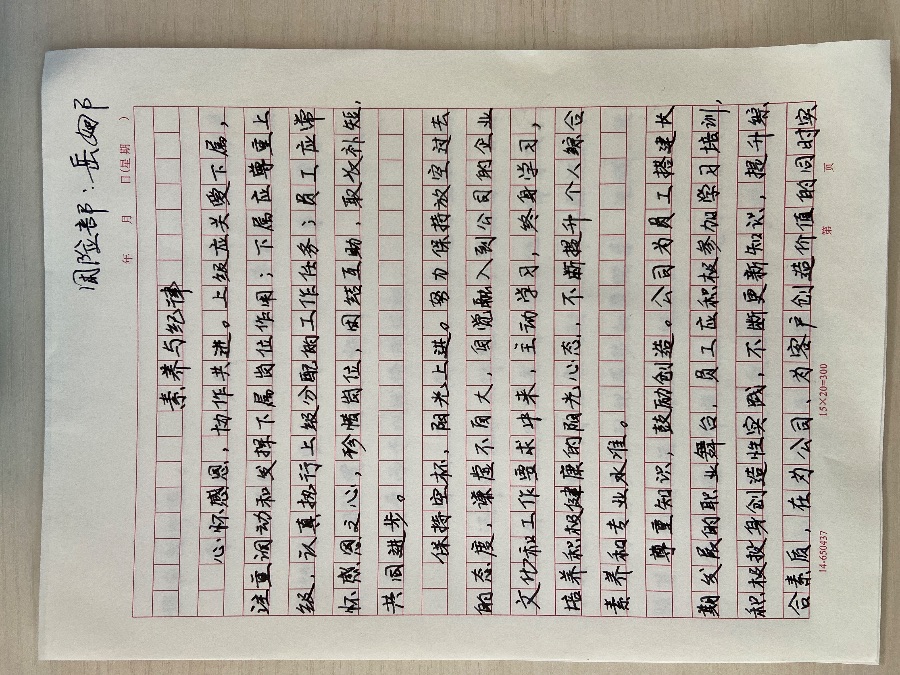 国险部：岳四节
年 月 日(星期 )
素养与纪律
心怀感恩，协作共进。上级应关爱下属，
注重调动和发挥下属岗位作用；下属应尊重上
级，认真执行上级分配的工作任务；员工应常
怀感恩之心，珍惜岗位，团结互助，取长补短，
共同进步。
保持空杯，阳光上进。努力保持放空过去
的态度，谦虚不自大，自觉融入到公司的企业
文化和工作要求中来，主动学习，终身学习，
培养积极健康的阳光心态，不断提升个人综合
素养和专业水准。
尊重知识，鼓励创造。公司为员工搭建长
期发展的职业舞台，员工应积极参加学习培训，
积极投身创造性实践，不断更新知识，提升综
合素质，在为公司、为客户创造价值的同时实
14-650437 15×20=300 第 页